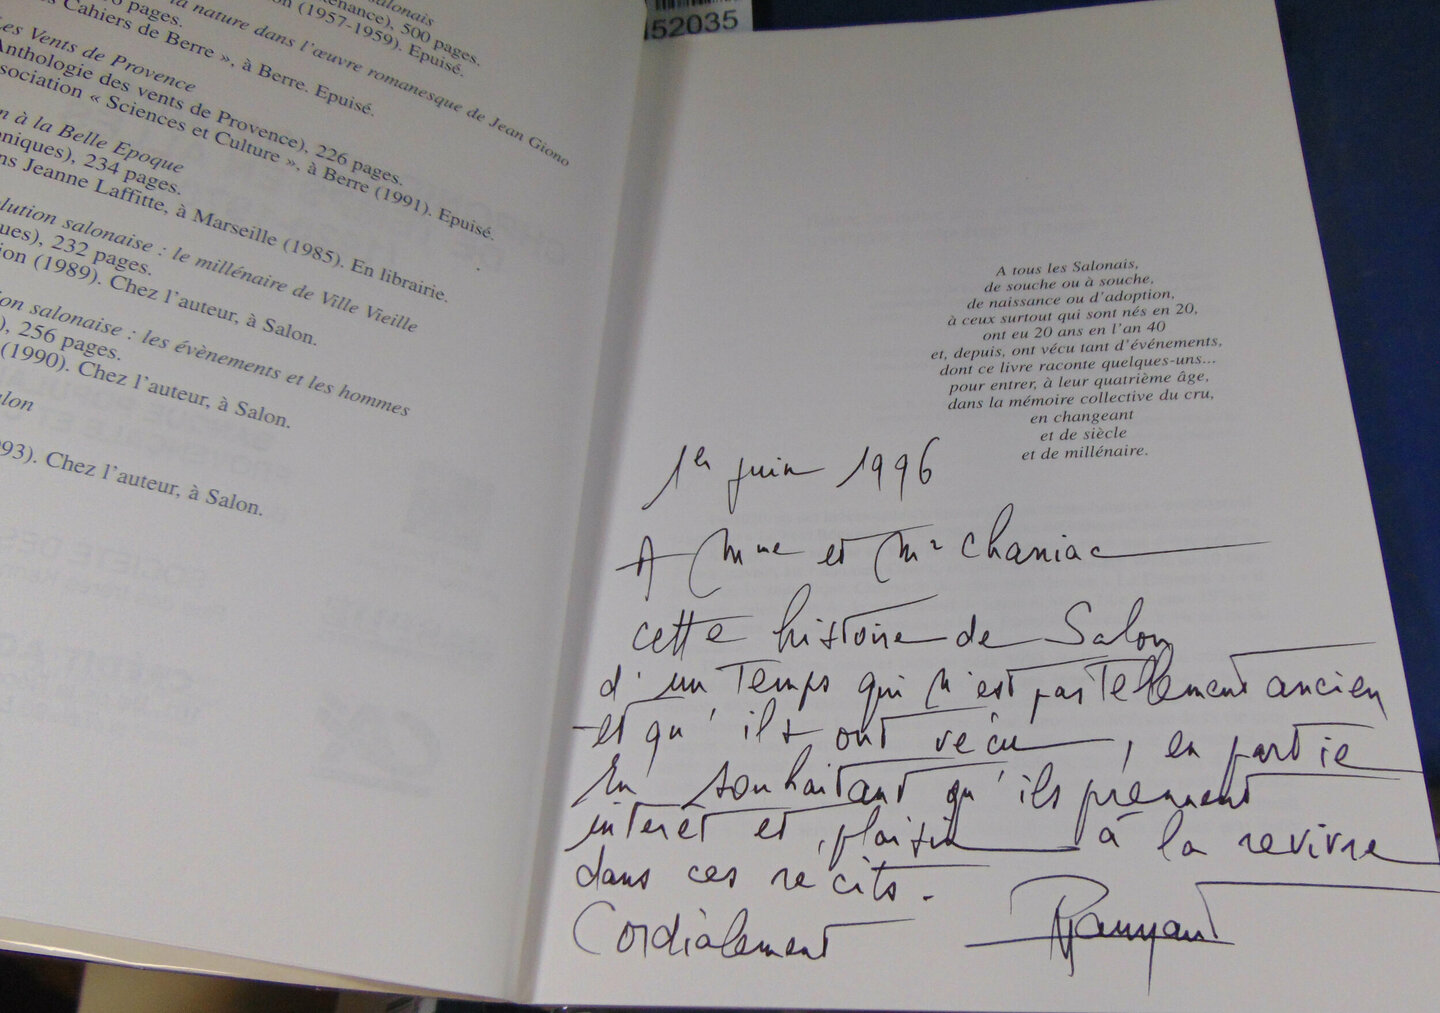 salonais
(1957-1959), 500 pages.
la nature dans l'œuvre romanesque de Jean Giono
Cahiers de Berre », à Berre. Epuisé.
Les Vents de Provence
Anthologie des vents de Provence), 226 pages.
ssociation « Sciences et Culture », à Berre (1991). Epuisé.
n à la Belle Epoque
niques), 234 pages.
ns Jeanne Laffitte, à Marseille (1985). En librairie.
lution salonaise : le millénaire de Ville Vieille
ues), 232 pages.
ion (1989). Chez l'auteur, à Salon.
ion salonaise : les évènements et les hommes
), 256 pages.
(1990). Chez l'auteur, à Salon.
alon
993). Chez l'auteur, à Salon.
52035
A tous les Salonais,
de souche ou à souche,
de naissance ou d'adoption,
à ceux surtout qui sont nés en 20,
ont eu 20 ans en l'an 40
et, depuis, ont vécu tant d'événements,
dont ce livre raconte quelques-uns...
pour entrer, à leur quatrième âge,
dans la mémoire collective du cru,
en changeant
et de siècle
et de millénaire.
1er juin 1996
A Mme et Mr Chaniac
cette histoire de Salon
d'un temps qui n'est pas tellement ancien
et qu'ils ont vécu, en partie
En souhaitant qu'ils prennent
intérêt et plaisir à la revivre
dans ces récits.
Cordialement